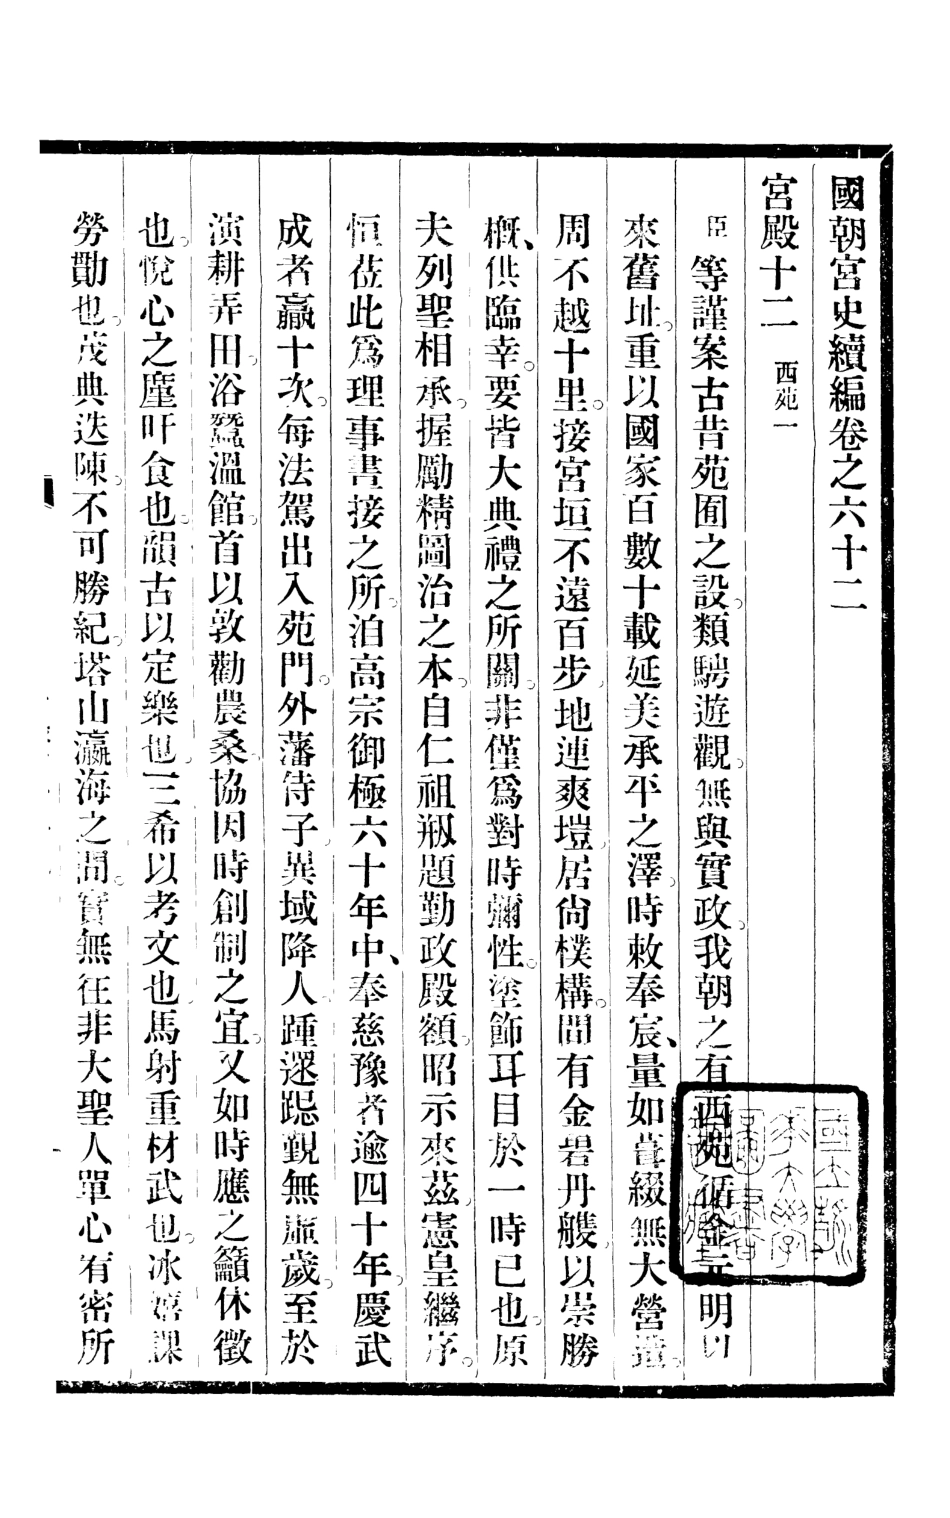 國朝宮史續編卷之六十二
宮殿十二 西苑一
臣等謹案古昔苑囿之設。類騁遊觀。無與實政。我朝之有西苑。循金元明以
來舊址。重以國家百數十載延美承平之澤。時敕奉宸、量如葺綴無大營造。
周不越十里。接宮垣不遠百步。地連爽塏。居尚樸構。間有金碧丹艧。以崇勝
概、供臨幸。要皆大典禮之所關。非僅爲對時彌性。塗飾耳目於一時已也。原
夫列聖相承。握勵精圖治之本。自仁祖瓶題勤政殿額。昭示來茲。憲皇繼序。
恒莅此爲理事晝接之所。洎高宗御極六十年中、奉慈豫者逾四十年。慶武
成者贏十次。每法駕出入苑門。外藩侍子。異域降人。踵遝跽覲無虛歲。至於
演耕弄田。浴蠶溫館。首以敦勸農桑。協因時創制之宜。又如時應之籲休徵
也。悅心之廑旰食也。韻古以定樂也。三希以考文也。馬射重材武也。冰嬉課
勞勩也。茂典迭陳。不可勝紀。塔山瀛海之間。實無在非大聖人單心宥密所